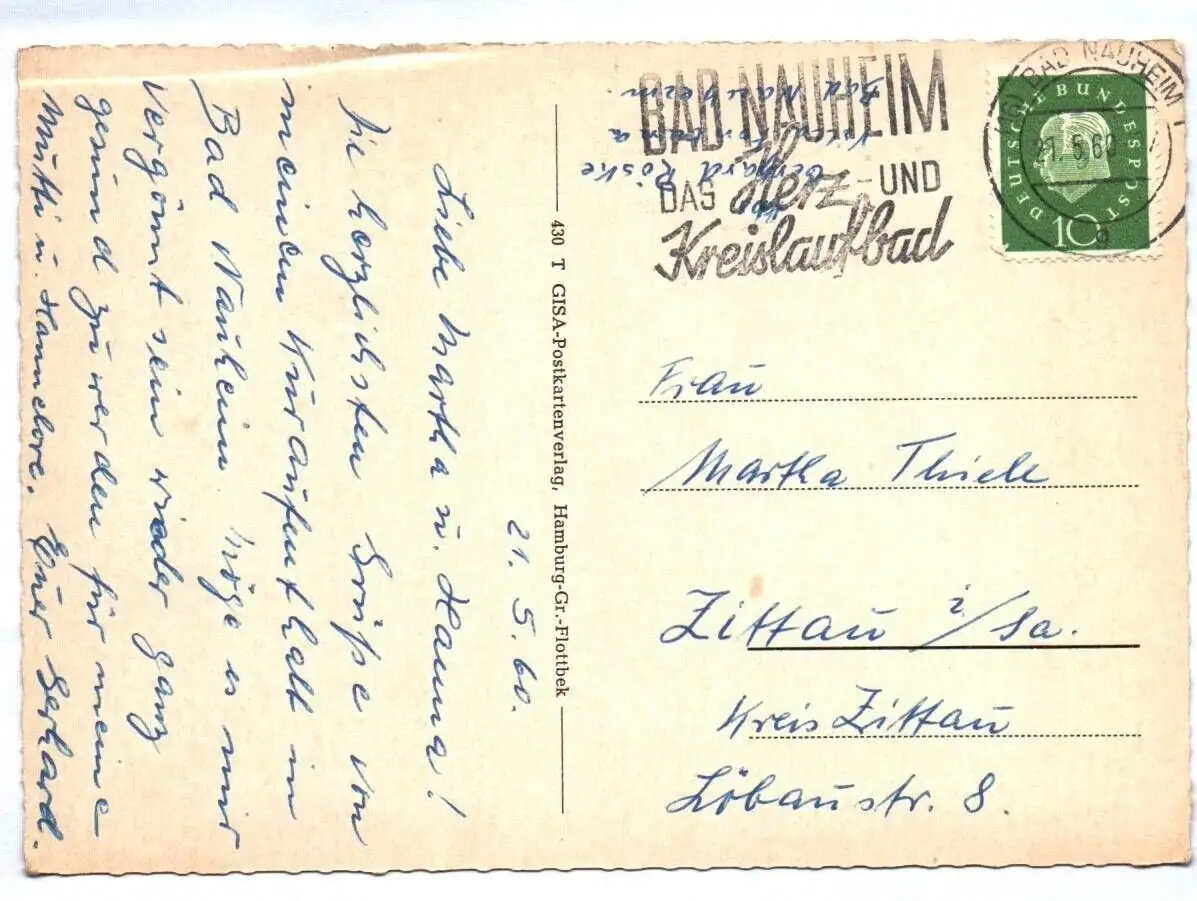 21. 5. 60.
Liebe Martha u. Hanna!
Die herzlichsten Grüße von
meinem Kuraufenthalt in
Bad Nauheim. Möge es mir
vergönnt sein wieder ganz
gesund zu werden für meine
Mutti u. Hannelore. Euer Gerhard.
430 T GISA-Postkartenverlag, Hamburg-Gr.-Flottbek
Gerhard Röske
Bad Nauheim.
BAD NAUHEIM
DAS Herz- UND
Kreislaufbad
BAD NAUHEIM 1
21. 5. 60
g
DEUTSCHE BUNDESPOST
10
Frau
Martha Thiele
Zittau i/Sa.
Kreis Zittau
Löbaustr. 8.